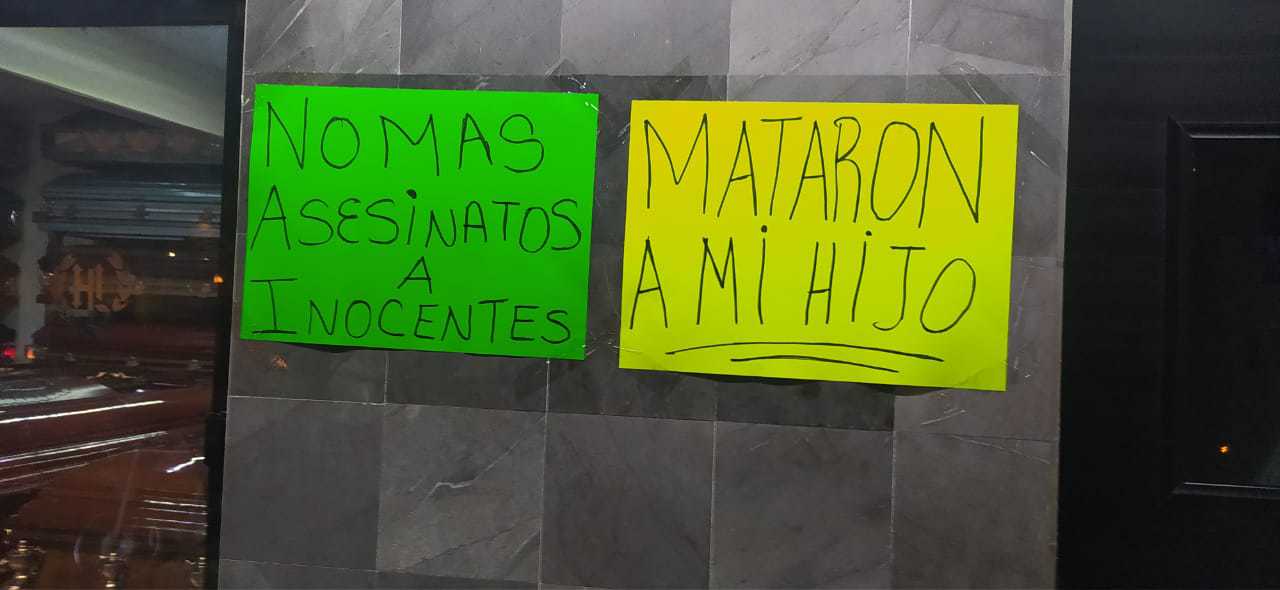 NO MAS
ASESiNATOS
A
INOCENTES
MATARON
A Mi HiJO